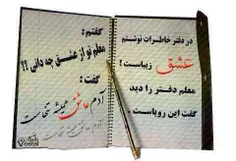 در دفتر خاطرات نوشتم
عشق زیباست !
معلم دفتر را دید
گفت این رویاست
گفتم :
معلم تو از عشق چه دانی !!
گفت :
آدم عاشق همیشه تنهاست
آدم عاشق همیشه تنهاست